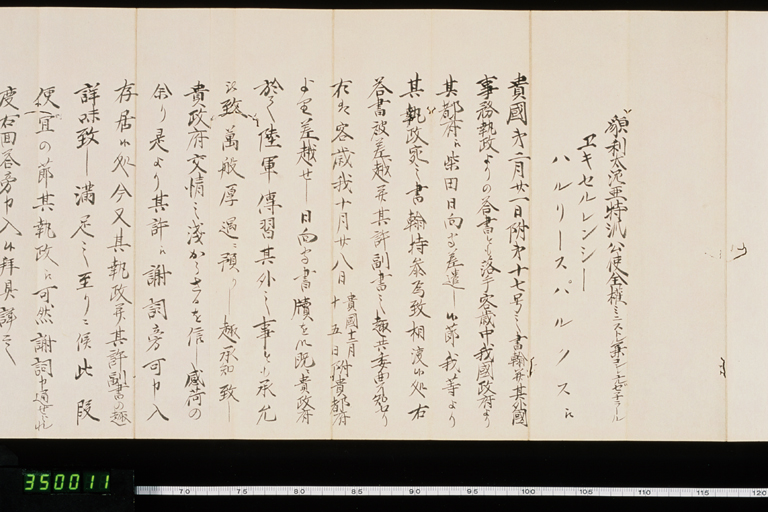 額利太泥亜特派公使全権ミニストル兼コンシュルゼネラール
エキセルレンシー
ハルリースパルクスに
貴國第二月廿一日附第十七号之書翰并其外國
事務執政よりの答書とも落手客歳中我國政府より
其都府に柴田日向守差遣し候節我等より
其執政宛之書翰持参為致相渡候処右
答書被差越并其許副書之趣共委曲承知り
右は客歳我十月廿八日貴國十二月十五日附貴都府
より差越せし日向守書牘を以既貴政府
於て陸軍傳習其外之事とも承允
に致萬般厚遇に預りし趣承知致し
貴政府交情之淺からさるを信し感荷の
余り是より其許に謝詞旁可申入
存居候処今又其執政并其許副書の趣
詳味致し満足之至りに候此段
便宜の節其執政に可然謝詞申通せられ
度右回答旁申入候拝具謹言
350011
70 75 80 85 90 95 100 105 110 115 120